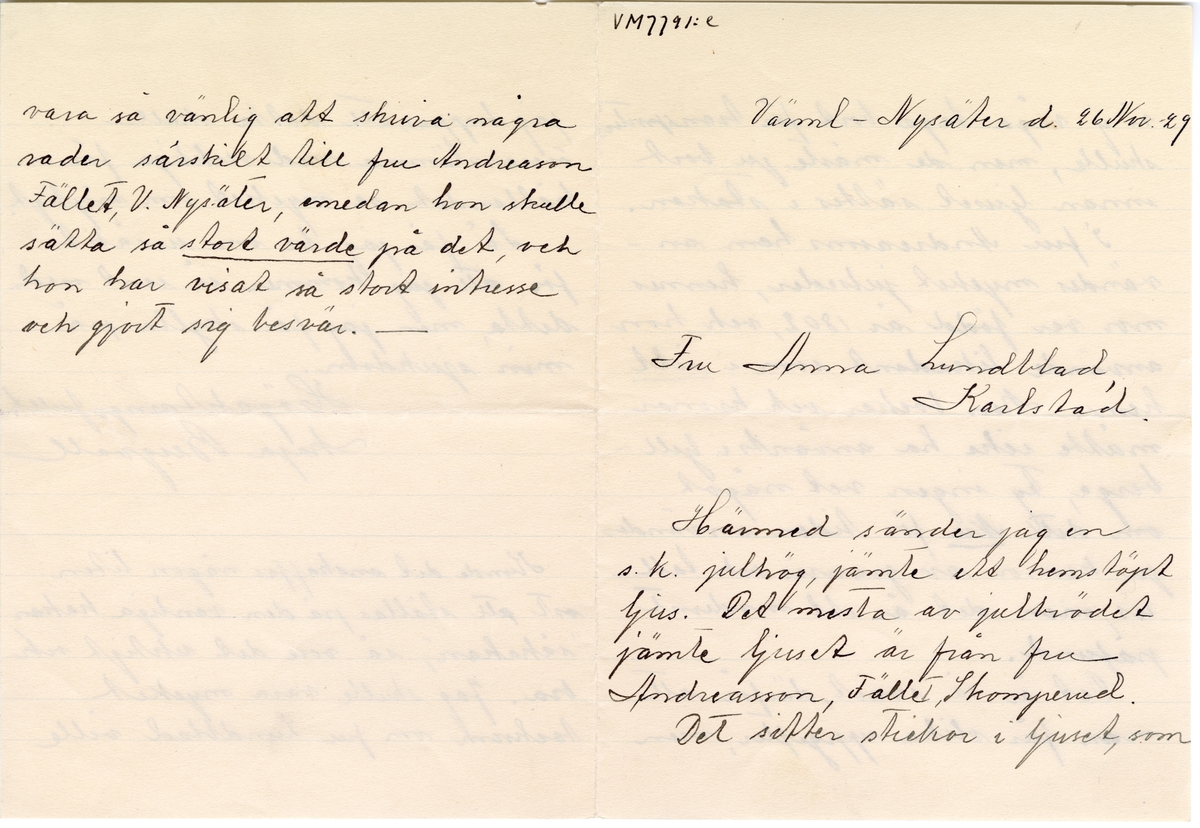 vara så vänlig att skriva några
rader särskilt till fru Andreason
Fället, V. Nysäter, emedan hon skulle
sätta så stort värde på det, och
hon har visat så stort intresse
och gjort sig besvär. —
VM7791:e
Värml - Nysäter d. 26 Nov. 29
Fru Anna Lundblad,
Karlstad.
Härmed sänder jag en
s.k. julhög, jämte ett hemstöpt
ljus. Det mesta av julbrödet
jämte ljuset är från fru
Andreasson, Fället, Skomperud.
Det sitter stickor i ljuset, som